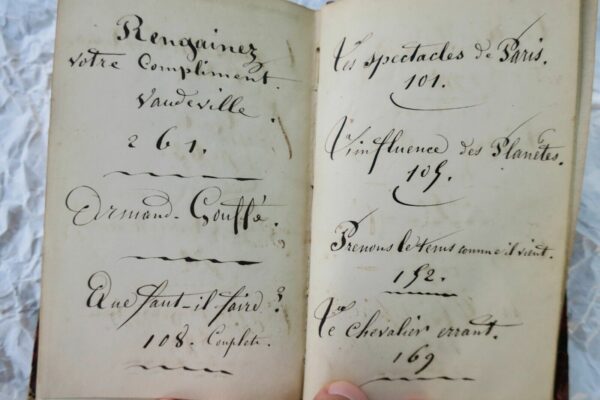 Rengainez
votre Compliment.
Vaudeville.
261.
Armand-Gouffé.
Que faut-il faire?
108. Couplets.
Les spectacles de Paris.
101.
L'influence des Planètes.
105.
Prenons le tems comme il vient.
152.
Le Chevalier errant.
169